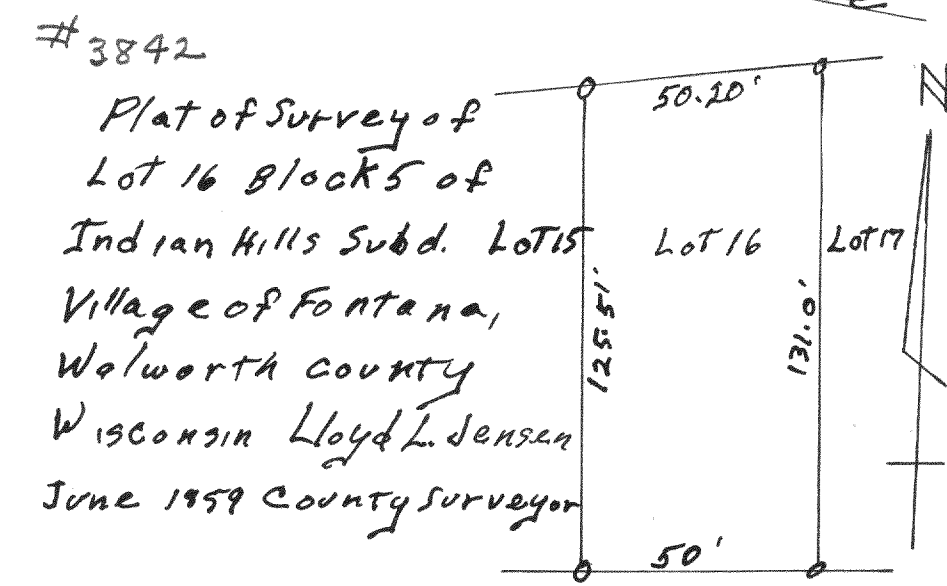 #3842
Plat of Survey of
Lot 16 Block 5 of
Indian Hills Subd.
Village of Fontana,
Walworth County
Wisconsin Lloyd L. Jensen
June 1959 County Surveyor
50.20'
N
LOT 15
Lot 16
Lot 17
125.51'
131.0'
50'